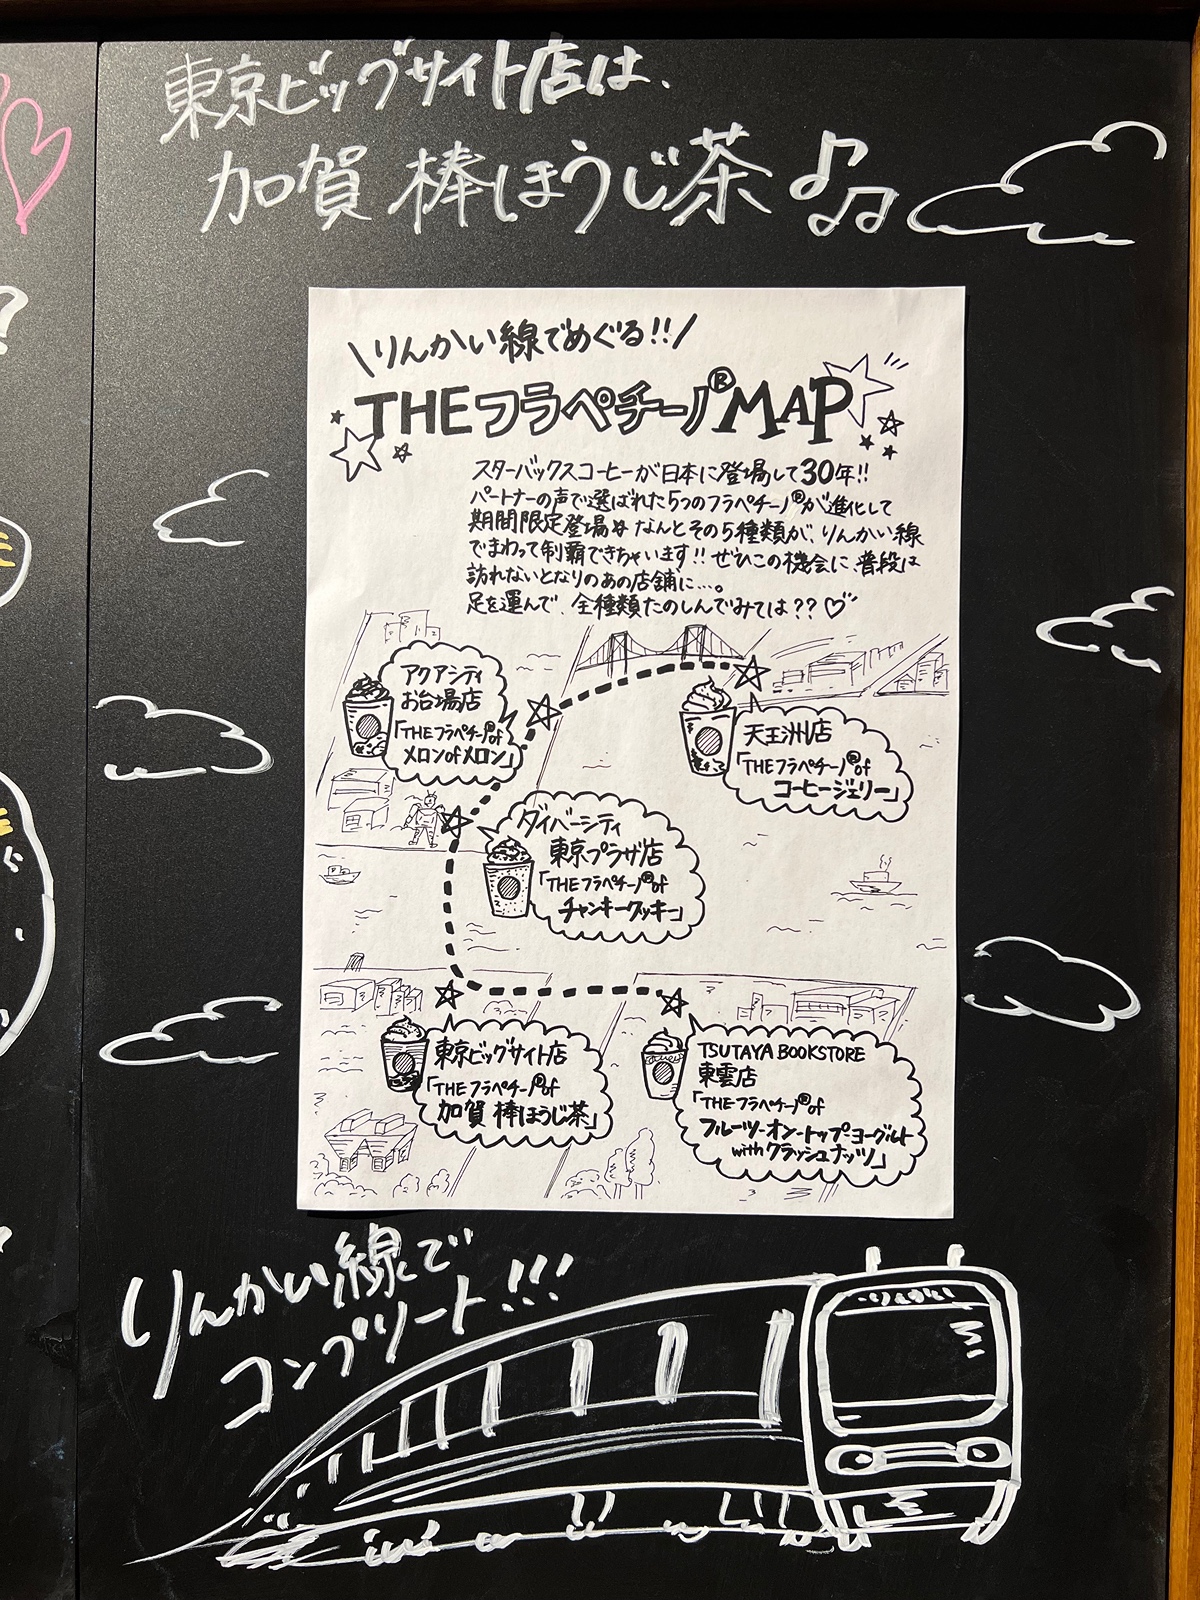 東京ビッグサイト店は、
加賀 棒ほうじ茶
\りんかい線でめぐる!!/
THEフラペチーノ®MAP
スターバックスコーヒーが日本に登場して30年!!
パートナーの声で選ばれた5つのフラペチーノ®が進化して
期間限定登場 なんとその5種類が、りんかい線
でまわって制覇できちゃいます!! ぜひこの機会に、普段は
訪れないとなりのあの店舗に…。
足を運んで、全種類たのしんでみては??♡
アクアシティ
お台場店
「THEフラペチーノ®of
メロンofメロン」
天王洲店
「THEフラペチーノ®of
コーヒージェリー」
ダイバーシティ
東京プラザ店
「THEフラペチーノ®of
チャンキークッキー」
東京ビッグサイト店
「THEフラペチーノ®of
加賀 棒ほうじ茶」
TSUTAYA BOOKSTORE
東雲店
「THEフラペチーノ®of
フルーツ-オン-トップ-ヨーグルト
withクラッシュナッツ」
りんかい線で
コンプリート!!!
りんかい